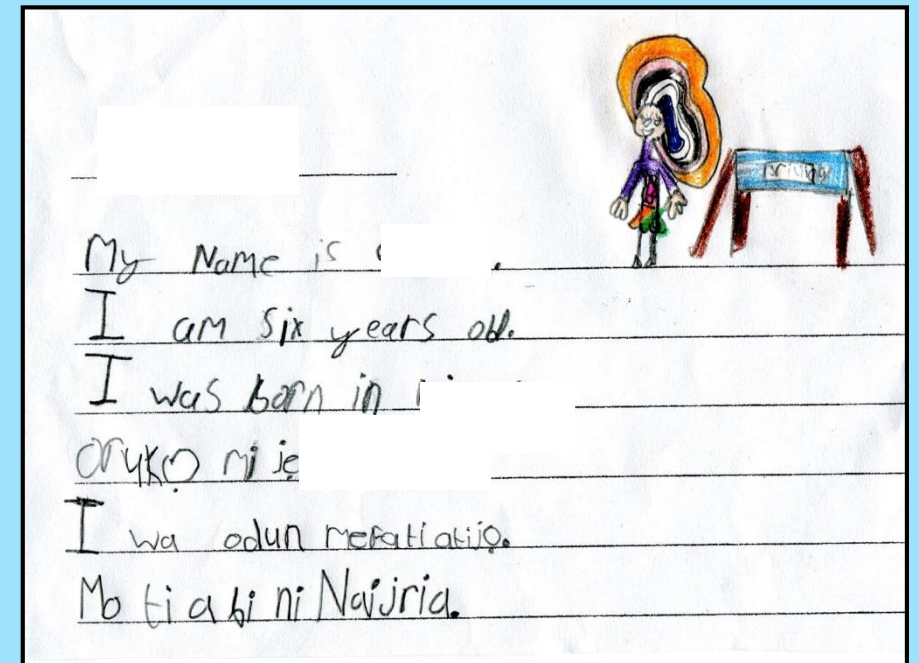 My Name is
I am six years old.
I was born in
oruko mi jẹ
I wa odun mefati atijọ.
Mo ti a bi ni Naijria.